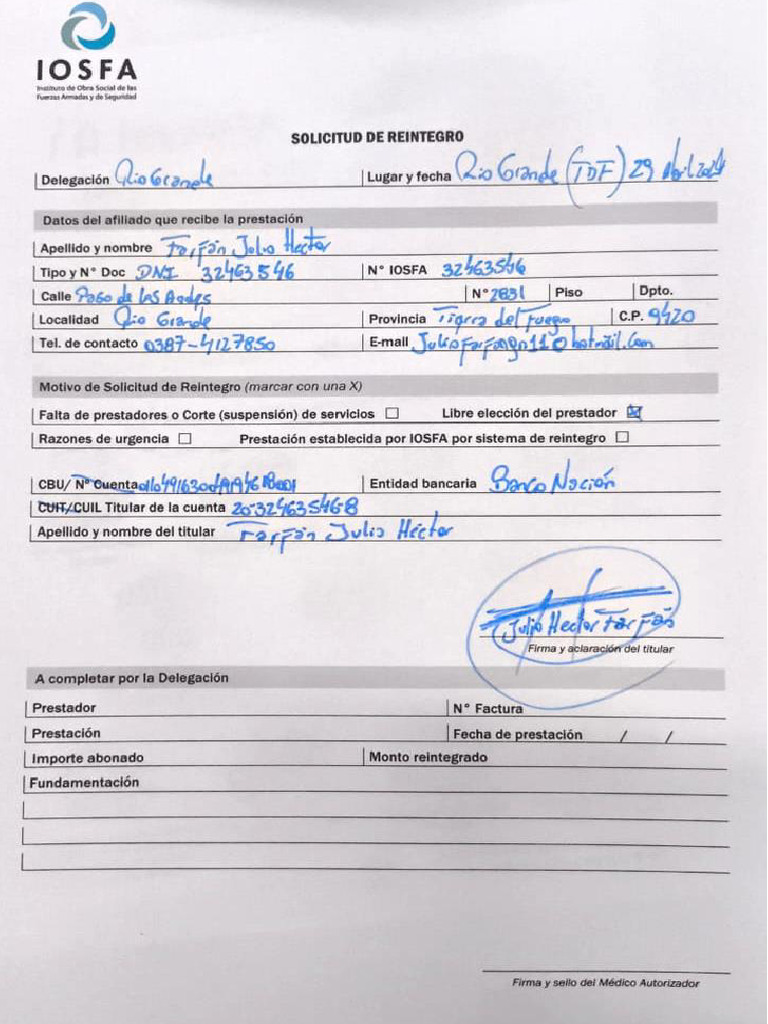 IOSFA
Instituto de Obra Social de las
Fuerzas Armadas y de Seguridad
SOLICITUD DE REINTEGRO
Delegación Rio Grande Lugar y fecha Rio Grande (TDF) 29 Abril 2024
Datos del afiliado que recibe la prestación
Apellido y nombre Farfán Julio Hector
Tipo y N° Doc DNI 32463546 N° IOSFA 32463546
Calle Paso de los Andes N° 2831 Piso Dpto.
Localidad Rio Grande Provincia Tierra del Fuego C.P. 9420
Tel. de contacto 0387-4127850 E-mail
Motivo de Solicitud de Reintegro (marcar con una X)
Falta de prestadores o Corte (suspensión) de servicios Libre elección del prestador X
Razones de urgencia Prestación establecida por IOSFA por sistema de reintegro
CBU/ N° Cuenta Entidad bancaria Banco Nación
CUIT/CUIL Titular de la cuenta 20-32463546-8
Apellido y nombre del titular Farfán Julio Héctor
Julio Hector Farfán
Firma y aclaración del titular
A completar por la Delegación
Prestador N° Factura
Prestación Fecha de prestación / /
Importe abonado Monto reintegrado
Fundamentación
Firma y sello del Médico Autorizador